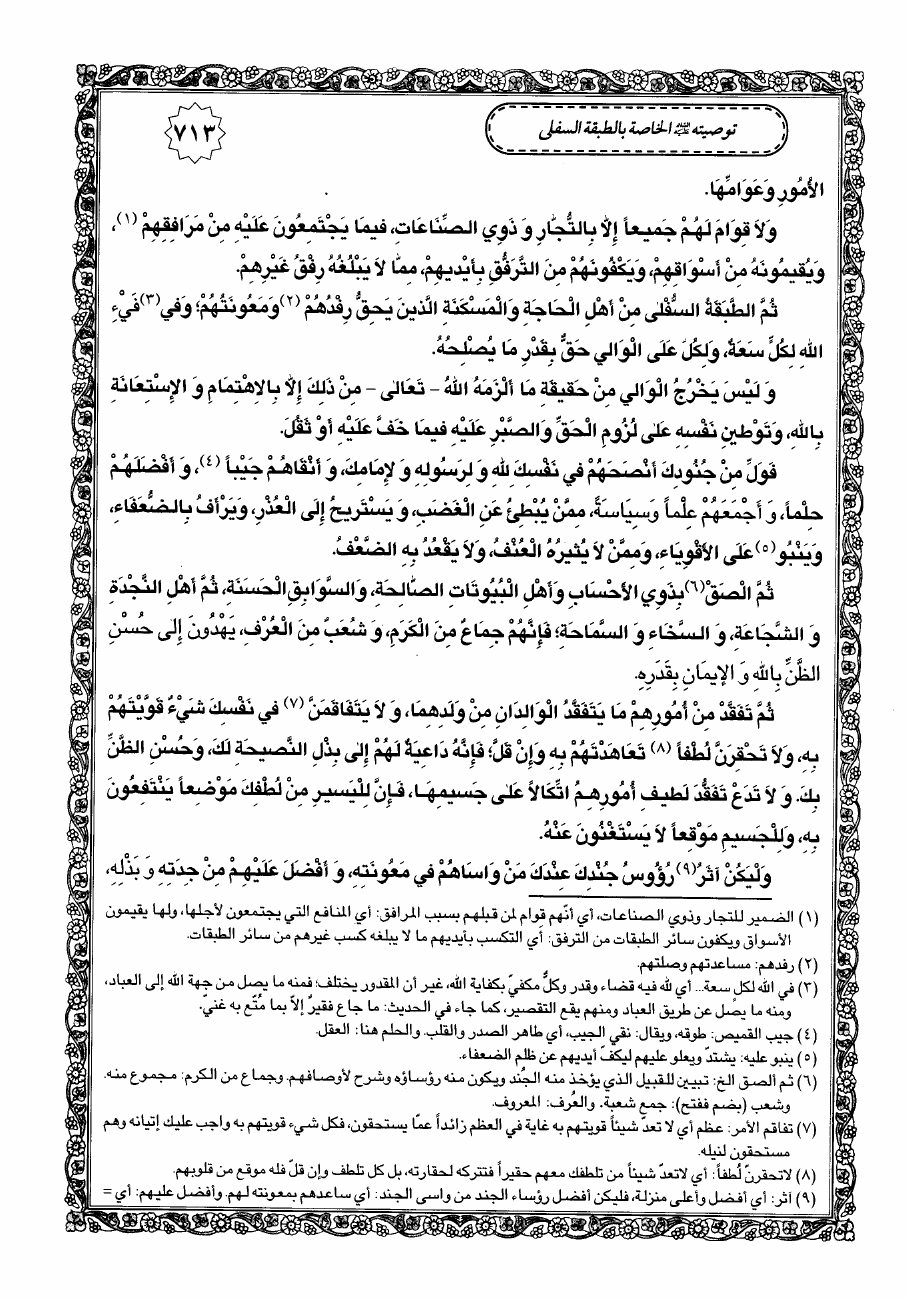 توصيته عليه السلام الخاصة بالطبقة السفلى
٧١٣
الأُمُورِ وَعَوَامِّهَا.
وَلاَ قِوَامَ لَهُمْ جَمِيعاً إِلاَّ بِالتُّجَّارِ وَ ذَوِي الصِّنَاعَاتِ، فيمَا يَجْتَمِعُونَ عَلَيْهِ مِنْ مَرَافِقِهِمْ (١)،
وَيُقيمُونَهُ مِنْ أَسْوَاقِهِمْ، وَيَكْفُونَهُمْ مِنَ التَّرَفُّقِ بِأَيْديهِمْ، مِمَّا لاَ يَبْلُغُهُ رِفْقُ غَيْرِهِمْ.
ثُمَّ الطَّبَقَةُ السُّفْلى مِنْ أَهْلِ الْحَاجَةِ وَالْمَسْكَنَةِ الَّذينَ يَحِقُّ رِفْدُهُمْ (٢) وَمَعُونَتُهُمْ؛ وَفي (٣) فَيْءِ
اللهِ لِكُلٍّ سَعَةٌ، وَلِكُلٍّ عَلَى الْوَالي حَقٌّ بِقَدْرِ مَا يُصْلِحُهُ.
وَ لَيْسَ يَخْرُجُ الْوَالي مِنْ حَقيقَةِ مَا أَلْزَمَهُ اللهُ - تَعَالى - مِنْ ذَلِكَ إِلاَّ بِالاهْتِمَامِ وَ الإسْتِعَانَةِ
بِاللهِ، وَتَوْطينِ نَفْسِهِ عَلى لُزُومِ الْحَقِّ وَالصَّبْرِ عَلَيْهِ فيمَا خَفَّ عَلَيْهِ أَوْ ثَقُلَ.
فَوَلِّ مِنْ جُنُودِكَ أَنْصَحَهُمْ في نَفْسِكَ للهِ وَ لِرَسُولِهِ وَ لإمَامِكَ، وَ أَنْقَاهُمْ جَيْباً (٤)، وَ أَفْضَلَهُمْ
حِلْماً، وَ أَجْمَعَهُمْ عِلْماً وَسِيَاسَةً، مِمَّنْ يُبْطِئُ عَنِ الْغَضَبِ، وَ يَسْتَريحُ إِلَى الْعُذْرِ، وَيَرْأَفُ بِالضُّعَفَاءِ،
وَيَنْبُو (٥) عَلَى الأَقْوِيَاءِ، وَمِمَّنْ لاَ يُثيرُهُ الْعُنْفُ، وَلاَ يَقْعُدُ بِهِ الضَّعْفُ.
ثُمَّ الْصَقْ (٦) بِذَوِي الأَحْسَابِ وَأَهْلِ الْبُيُوتَاتِ الصَّالِحَةِ، وَالسَّوَابِقِ الْحَسَنَةِ، ثُمَّ أَهْلِ النَّجْدَةِ
وَ الشَّجَاعَةِ، وَ السَّخَاءِ وَ السَّمَاحَةِ؛ فَإِنَّهُمْ جِمَاعٌ مِنَ الْكَرَمِ، وَ شُعَبٌ مِنَ الْعُرْفِ، يَهْدُونَ إِلى حُسْنِ
الظَّنِّ بِاللهِ وَ الإيمَانِ بِقَدَرِهِ.
ثُمَّ تَفَقَّدْ مِنْ أُمُورِهِمْ مَا يَتَفَقَّدُ الْوَالِدَانِ مِنْ وَلَدِهِمَا، وَ لاَ يَتَفَاقَمَنَّ (٧) في نَفْسِكَ شَيْءٌ قَوَّيْتَهُمْ
بِهِ، وَلاَ تَحْقِرَنَّ لُطْفاً (٨) تَعَاهَدْتَهُمْ بِهِ وَإِنْ قَلَّ؛ فَإِنَّهُ دَاعِيَةٌ لَهُمْ إِلى بَذْلِ النَّصيحَةِ لَكَ، وَحُسْنِ الظَّنِّ
بِكَ. وَ لاَ تَدَعْ تَفَقُّدَ لَطيفِ أُمُورِهِمُ اتِّكَالاً عَلى جَسيمِهَا، فَإِنَّ لِلْيَسيرِ مِنْ لُطْفِكَ مَوْضِعاً يَنْتَفِعُونَ
بِهِ، وَلِلْجَسيمِ مَوْقِعاً لاَ يَسْتَغْنُونَ عَنْهُ.
وَلْيَكُنْ آثَرُ (٩) رُؤُوسِ جُنْدِكَ عِنْدَكَ مَنْ وَاسَاهُمْ في مَعُونَتِهِ، وَ أَفْضَلَ عَلَيْهِمْ مِنْ جِدَتِهِ وَ بَذْلِهِ،
(١) الضمير للتجار وذوي الصناعات، أي أنّهم قوام لمن قبلهم بسبب المرافق: أي المنافع التي يجتمعون لأجلها، ولها يقيمون
الأسواق ويكفون سائر الطبقات من الترفق: أي التكسب بأيديهم ما لا يبلغه كسب غيرهم من سائر الطبقات.
(٢) رفدهم: مساعدتهم وصلتهم.
(٣) في الله لكل سعة... أي لله فيه قضاء وقدر وكلٌّ مكفيّ بكفاية الله، غير أن المقدور يختلف؛ فمنه ما يصل من جهة الله إلى العباد،
ومنه ما يصل عن طريق العباد ومنهم يقع التقصير، كما جاء في الحديث: ما جاع فقيرٌ إلاّ بما مُتّع به غنيّ.
(٤) جيب القميص: طوقه، ويقال: نقي الجيب، أي طاهر الصدر والقلب. والحلم هنا: العقل.
(٥) ينبو عليه: يشتدّ ويعلو عليهم ليكفّ أيديهم عن ظلم الضعفاء.
(٦) ثم الصق الخ: تبيين للقبيل الذي يؤخذ منه الجُند ويكون منه رؤساؤه وشرح لأوصافهم. وجماع من الكرم: مجموع منه.
وشعب (بضم ففتح): جمع شعبة. والعُرف: المعروف.
(٧) تفاقم الأمر: عظم أي لا تعدّ شيئاً قويتهم به غاية في العظم زائداً عمّا يستحقون، فكل شيء قويتهم به واجب عليك إتيانه وهم
مستحقون لنيله.
(٨) لاتحقرنّ لُطفاً: أي لاتعدّ شيئاً من تلطفك معهم حقيراً فتتركه لحقارته، بل كل تلطف وإن قلّ فله موقع من قلوبهم.
(٩) آثر: أي أفضل وأعلى منزلة، فليكن أفضل رؤساء الجند من واسى الجند: أي ساعدهم بمعونته لهم. وأفضل عليهم: أي =